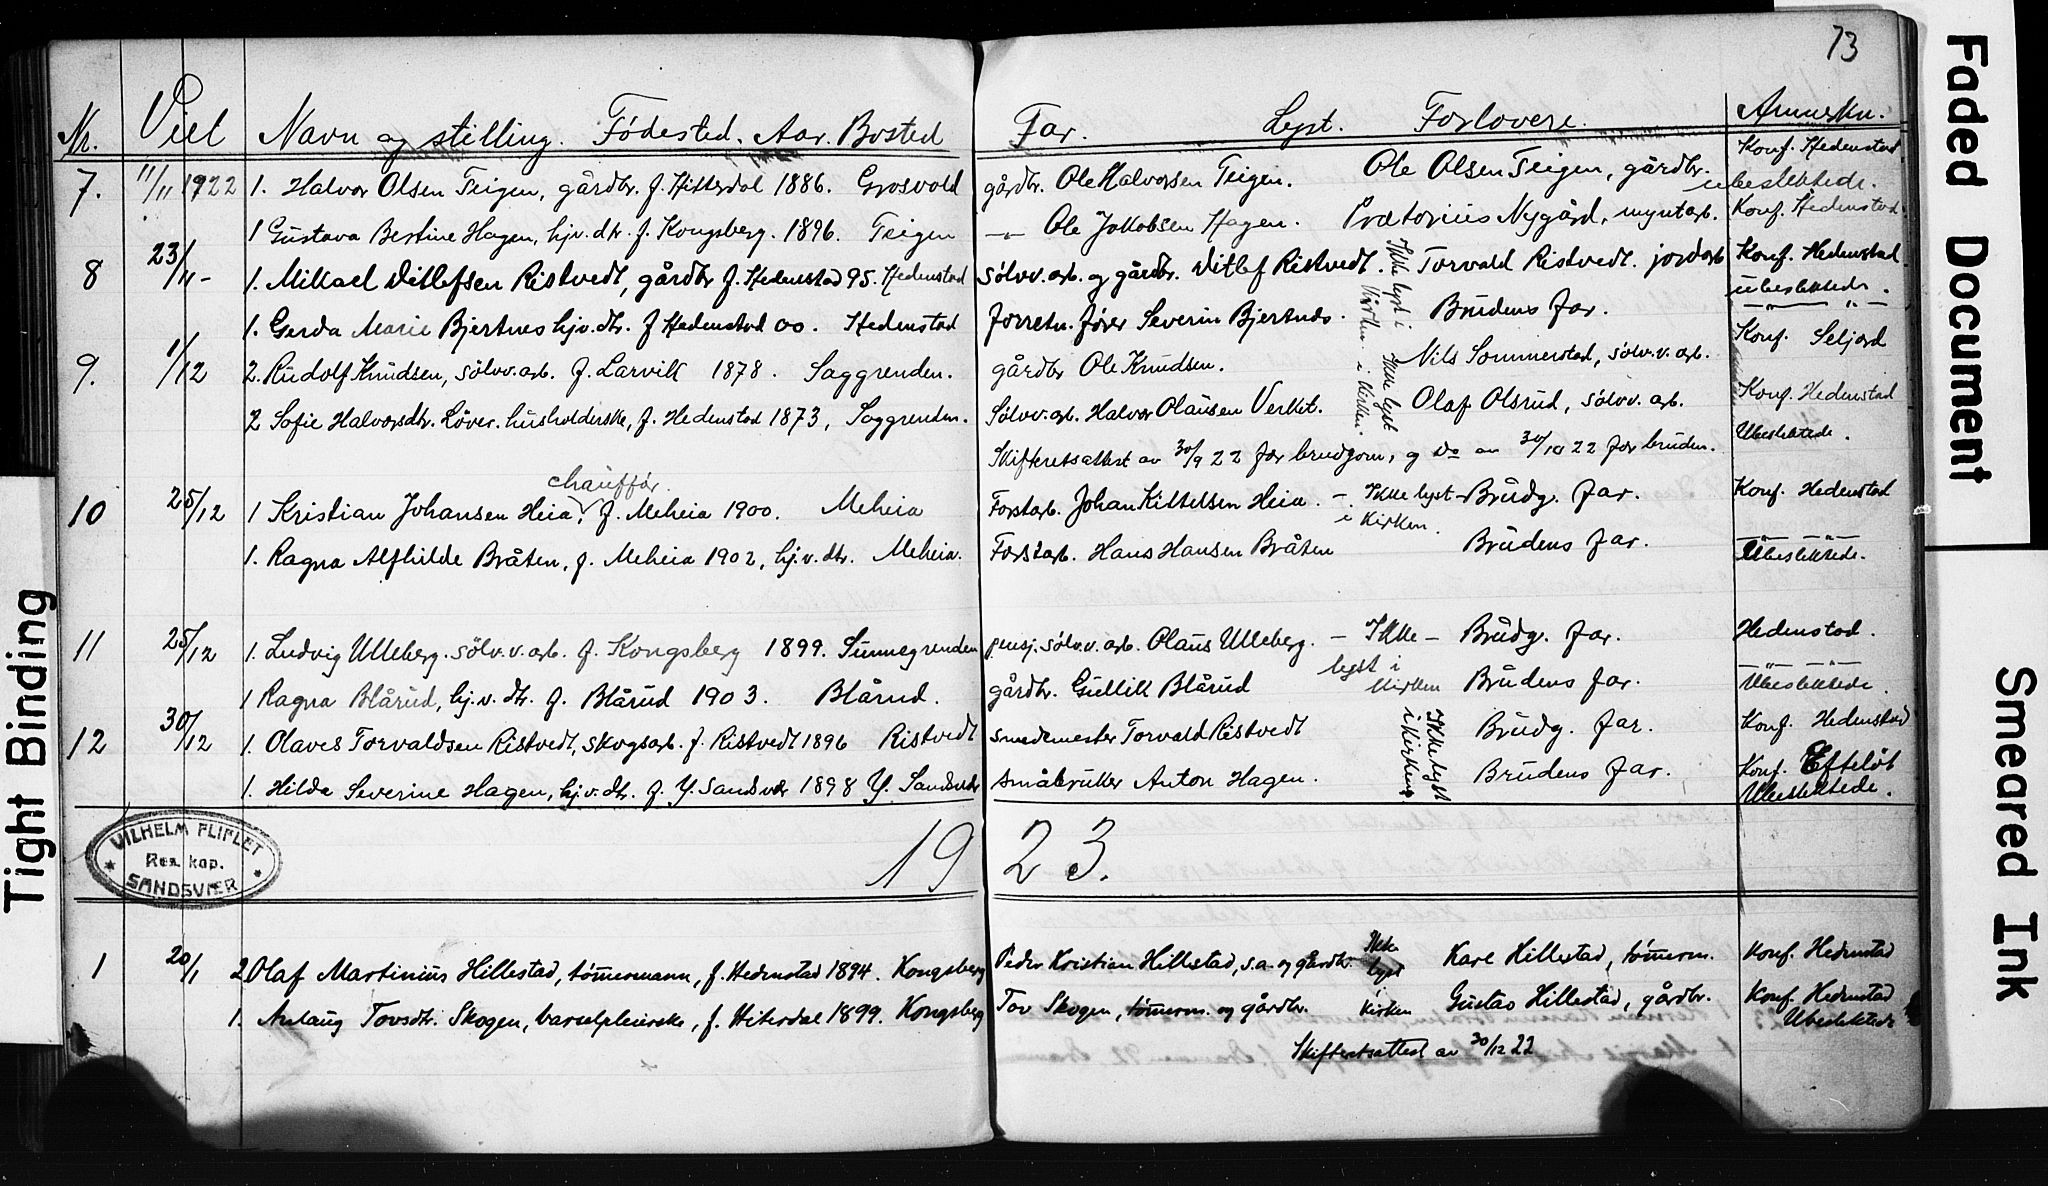 73
Nr. Viet Navn og stilling. Fødested. Aar. Bosted Far. Lyst. Forlovere. Anmerkn.
7. 11/11 1922 1. Halvor Olsen Teigen, gårdbr. f. Hitterdal 1886. Grosvold gårdbr. Ole Halvorsen Teigen. Ole Olsen Teigen, gårdbr. Konf. Hedenstad ubeslektede.
1 Gustava Bertine Hagen, hjv. dtr. f. Kongsberg. 1896. Teigen —„— Ole Jakobsen Hagen. Prætorius Nygård, myntarb. Konf. Hedenstad.
8 23/11 - 1. Mikael Ditlefsen Ristvedt, gårdbr f. Hedenstad 95. Hedenstad sølvv. arb. og gårdbr. Ditlef Ristvedt. Ikke lyst i Kirken Torvald Ristvedt. jordarb Konf. Hedenstad ubeslektede.
1. Gerda Marie Bjertnes hjv. dtr. f Hedenstad 00. Hedenstad forretn. fører Severin Bjertnes. Brudens far. —„— „ —
9. 1/12 2. Rudolf Knudsen, sølvv. arb. f. Larvik 1878. Saggrenden. gårdbr Ole Knudsen. Ikke lyst i Kirken Nils Sommerstad, sølv. v. arb. Konf. Seljord
2 Sofie Halvorsdtr. Løver. husholderske, f. Hedenstad 1873, Saggrenden. Sølvv. arb. Halvor Olausen Verket. Olaf Olsrud, sølvv. arb. Konf. Hedenstad
Ubeslektede.
Skifteretsattest av 30/9 22 for brudgom, og do av 30/10 22 for bruden.
chauffør.
10 25/12 1 Kristian Johansen Heia, f. Meheia 1900. Meheia Forstarb. Johan Kittelsen Heia. — Ikke lyst — i Kirken. Brudg. far. Konf. Hedenstad
1. Ragna Alfhilde Bråten, f. Meheia 1902, hj. v. dtr. Meheia. Forstarb. Hans Hansen Bråten Brudens far. —„— —„— Ubeslektede.
11 25/12 1. Ludvig Ulleberg. sølv. v. arb. f. Kongsberg 1899. Sunnegrenden pensj. sølv. v. arb. Olaus Ulleberg. — Ikke — lyst i Kirken Brudg. far. Hedenstad.
1 Ragna Blårud, hj. v. dtr. f. Blårud 1903. Blårud. gårdbr. Gullik Blårud Brudens far. —„— —„— Ubeslektede.
12 30/12 1. Olaves Torvaldsen Ristvedt, skogsarb. f. Ristvedt 1896 Ristvedt smedemester Torvald Ristvedt Ikke lyst i Kirken Brudg. far. Konf. Hedenstad
1. Hilda Severine Hagen, hj. v. dtr. f. Y. Sandsvær 1898 Y. Sandsvær småbruker Anton Hagen. Brudens far. Konf. Efteløt Ubeslektede.
VILHELM FLIFLET
Res. kap.
SANDSVÆR
1923.
1 20/1 2 Olaf Martinius Hillestad, tømmermann, f. Hedenstad 1894. Kongsberg Peder Kristian Hillestad, s.a. og gårdbr. Ikke lyst i Kirken Kare Hillestad, tømerm. Konf. Hedenstad
1. Anlaug Tovsdtr. Skogen, barselpleierske, f. Hiterdal 1899. Kongsberg Tov Skogen, tømerm. og gårdbr. Gustav Hillestad, gårdbr. Konf. Hedenstad
Ubeslektede
Skifteretsattest av 30/12 22
Tight Binding
Faded Document
Smeared Ink